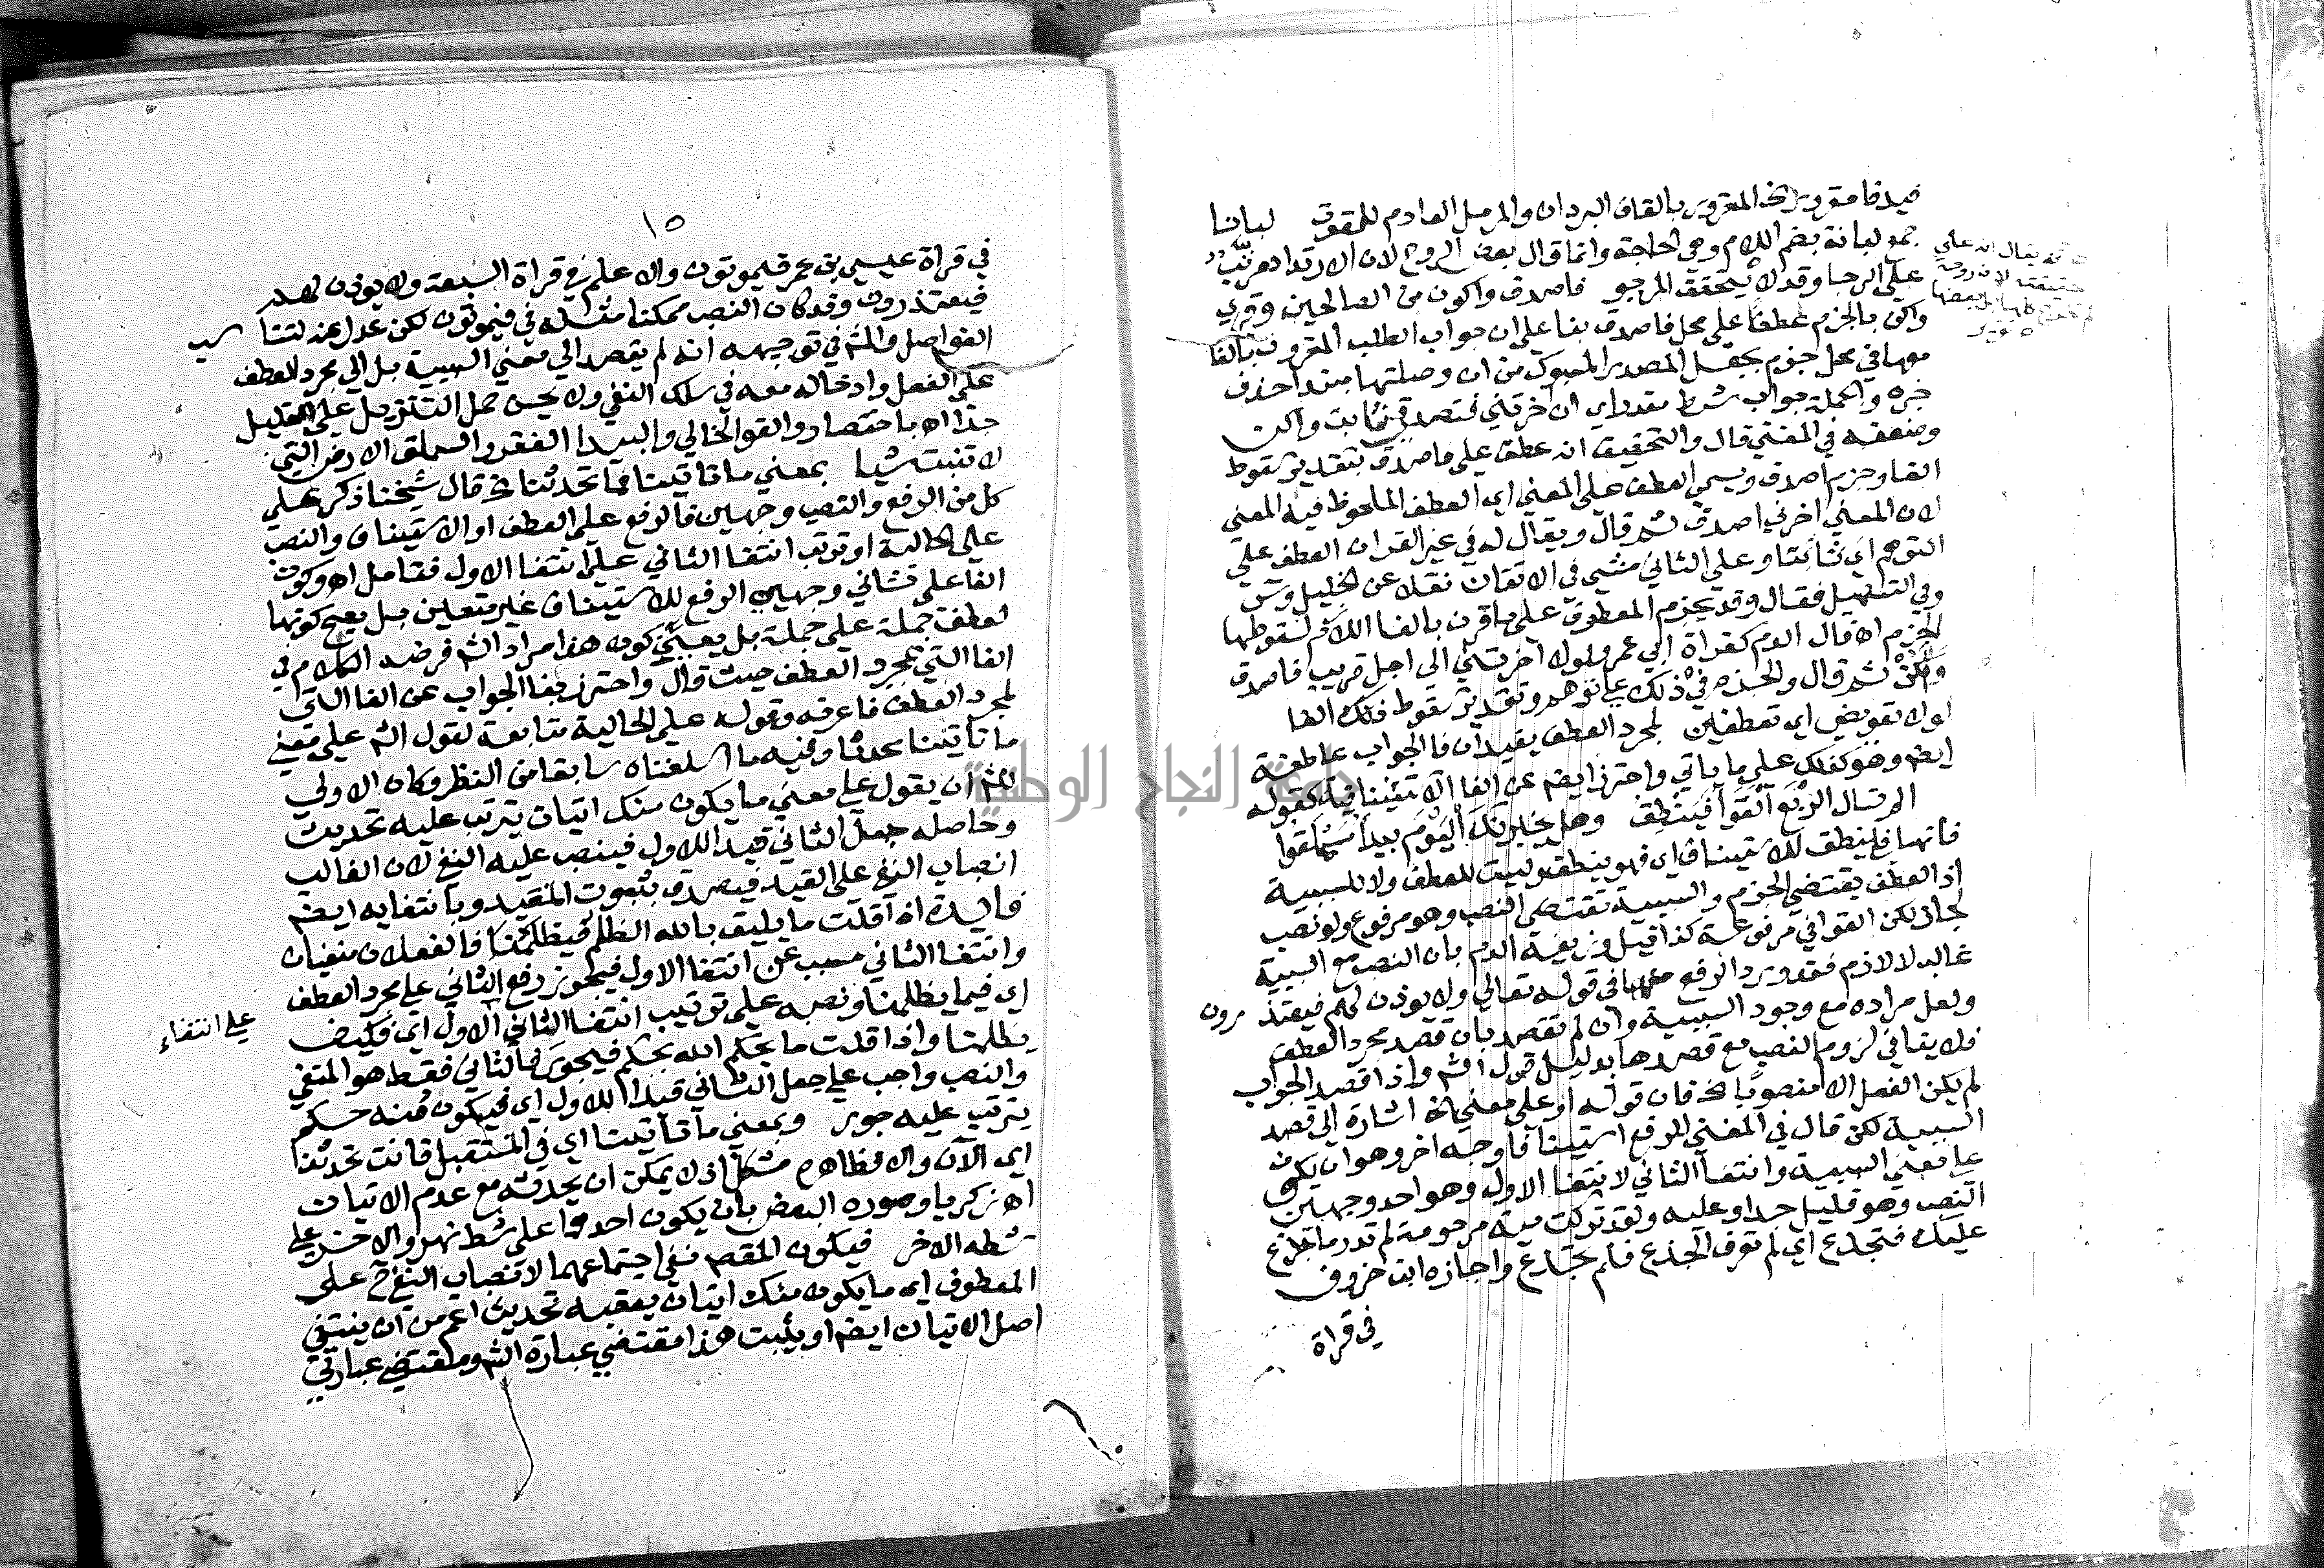 فيدفا مقرور الخ المقرور بالقاف البردان والمرمل العادم للقوت لبانا
جمع لبانة بضم اللام وهي الحاجة وانما قال بعض الروح لان الارتداد مرتب
على الرجا وقد لا يتحقق المرجو فاصدق واكون من الصالحين وقري
واكن بالجزم عطفا على محل فاصدق بنا على ان جواب الطلب المقرون بالفا
معها في محل جزم بجعل المصدر المسبوك من ان وصلتها مبتدا حذف
خبره والجملة جواب شرط مقدر اي ان اخرتني فتصدقي ثابت واكن
وضعفه في المغني قال والتحقيق انه عطف على فاصدق بتقدير سقوط
الفا وجزم اصدق ويسمى العطف على المعنى اي العطف الملحوظ فيه المعنى
لان المعنى اخرني اصدق ثم قال ويقال له في غير القران العطف على
التوهم اي تادبا وعلى الثاني مشى في الاتقان نقلا عن الخليل وس
وفي التسهيل فقال وقد يجزم المعطوف على ما قرن بالفا اللازم لسقوطها
الجزم اه قال الدم كقراة ابي عمرو لولا اخرتني الى اجل قريب فاصدق
واكن ثم قال والجزم في ذلك على توهم وتقدير سقوط تلك الفا
لولا تعويض اي تعطفين لمجرد العطف يفيد ان فا الجواب عاطفة
ايضم وهو كذلك على ما ياتي واحترز ايضم عن الفا الاستئينافية كقوله
الم تسال الربع القوا فينطق وهل يخبرنك اليوم بيدا سملق
فانها في فينطق للاستيناف اي فهو ينطق وليست للعطف ولا للسببية
اذ العطف يقتضي الجزم والسببية تقتضي النصب وهو مرفوع ولو نصب
لجاز لكن القوافي مرفوعة كذا قيل وزيفه الدم بان النصب مع السببية
غالب لا لازم فقد ورد الرفع معها في قوله تعالى ولا يوذن لهم فيعتذرون
ولعل مراده مع وجود السببية وان لم تقصد بان قصد مجرد العطف
فلا ينافي لزوم النصب مع قصدها بدليل قول الش واذا قصد الجواب
لم يكن الفعل الا منصوبا الخ فان قوله او على معنى الخ اشارة الى قصد
السببية لكن قال في المغني للرفع استينافا وجه اخر وهو ان يكون
على معنى السببية وانتفا الثاني لانتفا الاول وهو احد وجهي
النصب وهو قليل جدا وعليه ولقد تركت صبية مرحومة لم تدر ما جزع
عليك فتجزع اي لم تعرف الجزع فلم تجزع واجازه ابن خروف
في قراة
١٥
في قراة عيسى بن عمر فيموتون والاعلم في قراة السبعة ولا يوذن لهم
فيعتذرون وقد كان النصب ممكنا مثله في فيموتون لكن عدل عنه لتناسب
الفواصل والمش في توجيهه انه لم يقصد الى معنى السببية بل الى مجرد العطف
على الفعل وادخاله معه في سلك النفي ولا يحسن حمل التنزيل على القليل
جدا اه باختصار والقوا الخالي والبيدا القفر والسملق الارض التي
لا تنبت شيا بمعنى ما تاتينا فما تحدثنا الخ قال شيخنا ذكر على
كل من الرفع والنصب وجهين فالرفع على العطف او الاستيناف والنصب
على الحالية او ترتب انتفا الثاني على انتفا الاول فتامل اه وكون
الفا على ثاني وجهي الرفع للاستيناف غير متعين بل يصح كونها
لعطف جملة على جملة بل يعين كون هذا مراد الش فرضه الكلام في
الفا التي لمجرد العطف حيث قال واحترز بفا الجواب عن الفا التي
لمجرد العطف فاعرفه وقوله على الحالية متابعة لقول الش على معنى
ما تاتينا محدثا وفيه ما اسلفناه سابقا من النظر وكان الاولى
للش ان يقول على معنى ما يكون منك اتيان يترتب عليه تحديث
وحاصله جعل الثاني قيد اللاول فينصب عليه النفي لان الغالب
انصباب النفي على القيد فيصدق بثبوت المقيد وبانتفايه ايضم
فايدة اذا قلت ما يليق بالله الظلم فيظلمنا فالفعلان منفيان
وانتفا الثاني مسبب عن انتفا الاول فيجوز رفع الثاني على مجرد العطف
اي فيما يظلمنا ونصبه على ترتيب انتفا الثاني الاول اي فكيف
على انتفاء
يظلمنا واذا قلت ما يحكم الله بحكم فيجور فالثاني فقط هو المنفي
والنصب واجب على جعل الثاني قيدا للاول اي فيكون منه حكم
يترتب عليه جور وبمعنى ما تاتينا اي في المستقبل فانت تحدثنا
اي الان والا فظاهره مشكل اذ لا يمكن ان يحدثه مع عدم الاتيان
اه زكريا وصوره البعض بان يكون احدهما على شط نهر والاخر على
شطه الاخر فيكون المقصم نفي اجتماعهما لانصباب النفي ح على
المعطوف اي ما يكون منك اتيان يعقبه تحديث اعم من ان ينتفي
اصل الاتيان ايضم او يثبت هذا مقتضى عبارة الش ومقتضى عبارتي
جامعة النجاح الوطنية